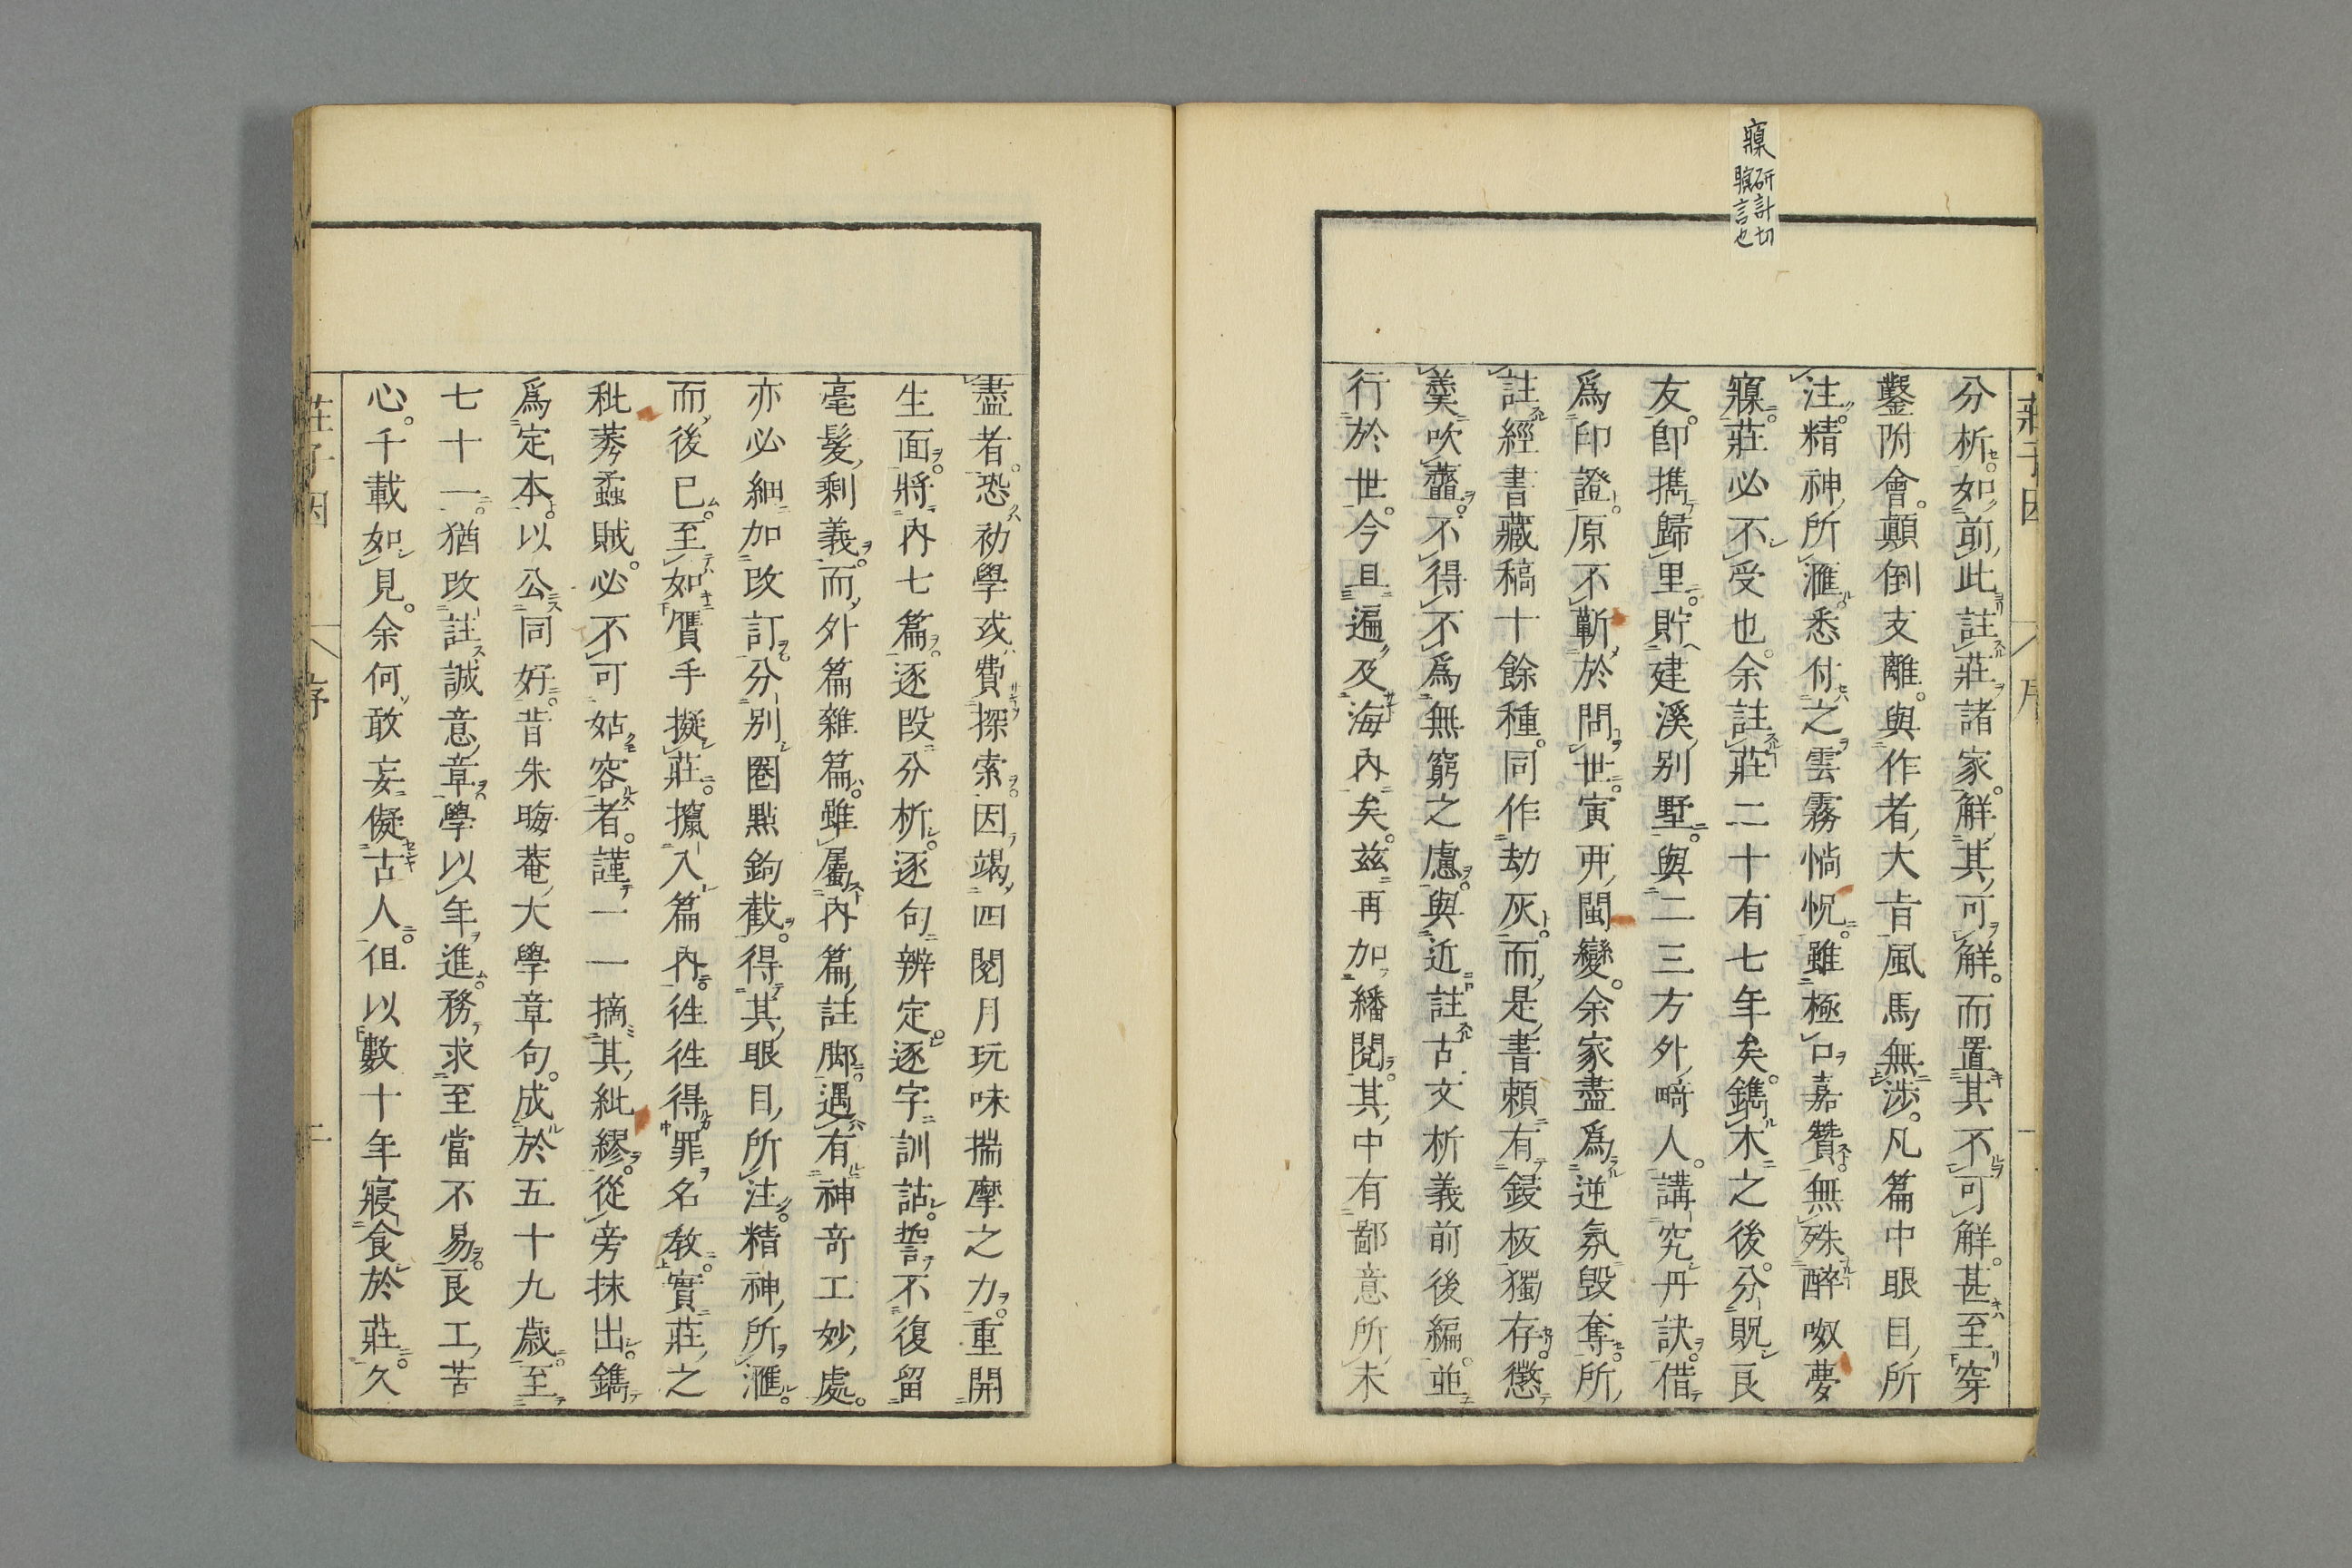 寱 研計切
䁂言也
莊子因 序
分析如前此註莊諸家解其可解而置其不可解甚至穿
鑿附會顛倒支離與作者大旨風馬無涉凡篇中眼目所
注精神所滙悉付之雲霧惝怳雖極口嘉贊無殊醉呶夢
寱莊必不受也余註莊二十有七年矣鐫木之後分貺良
友卽攜歸里貯建溪別墅與二三方外畸人講究丹訣借
爲印證原不蘄於問世寅丣閩變余家盡爲逆氛毀奪所
註經書藏稿十餘種同作劫灰而是書賴有鋟板獨存懲
羹吹虀不得不爲無窮之慮與近註古文析義前後編並
行於世今且遍及海內矣茲再加繙閱其中有鄙意所未
盡者恐初學或費探索因竭四閱月玩味揣摩之力重開
生面將內七篇逐段分析逐句辨定逐字訓詁誓不復留
毫髮剩義而外篇雜篇雖屬內篇註脚遇有神奇工妙處
亦必細加改訂分別圈點鉤截得其眼目所注精神所滙
而後已至如贋手擬莊攛入篇內徃徃得罪名敎實莊之
秕莠蟊賊必不可姑容者謹一一摘其紕繆從旁抹出鐫
爲定本以公同好昔朱晦菴大學章句成於五十九歲至
七十一猶改註誠意章學以年進務求至當不易良工苦
心千載如見余何敢妄儗古人但以數十年寢食於莊久
莊子因 序 二